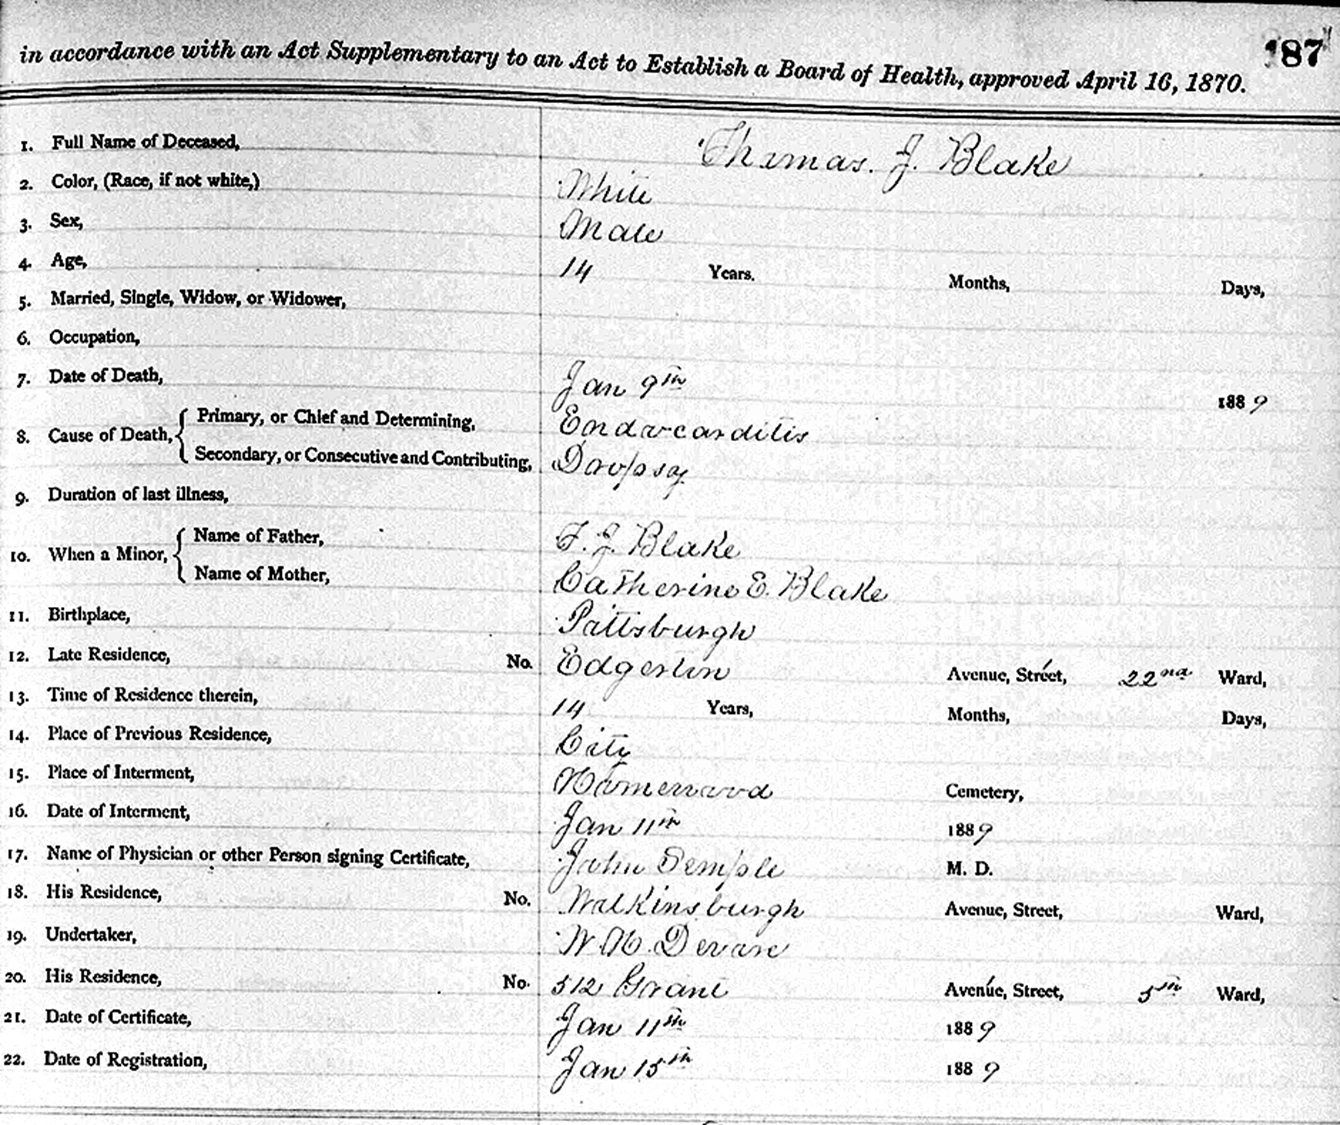 in accordance with an Act Supplementary to an Act to Establish a Board of Health, approved April 16, 1870.
187
1. Full Name of Deceased, Thomas. J. Blake
2. Color, (Race, if not white,) White
3. Sex, Male
4. Age, 14 Years. Months, Days,
5. Married, Single, Widow, or Widower,
6. Occupation,
7. Date of Death, Jan 9th 1889
8. Cause of Death, { Primary, or Chief and Determining, Endocarditis
Secondary, or Consecutive and Contributing, Dropsy
9. Duration of last illness,
10. When a Minor, { Name of Father, F. J. Blake
Name of Mother, Catherine E. Blake
11. Birthplace, Pittsburgh
12. Late Residence, No. Edgerton Avenue, Street, 22nd Ward,
13. Time of Residence therein, 14 Years, Months, Days,
14. Place of Previous Residence, City
15. Place of Interment, Homewood Cemetery,
16. Date of Interment, Jan 11th 1889
17. Name of Physician or other Person signing Certificate, John Semple M. D.
18. His Residence, No. Wilkinsburgh Avenue, Street, Ward,
19. Undertaker, W. H. Devore
20. His Residence, No. 512 Grant Avenue, Street, 5th Ward,
21. Date of Certificate, Jan 11th 1889
22. Date of Registration, Jan 15th 1889